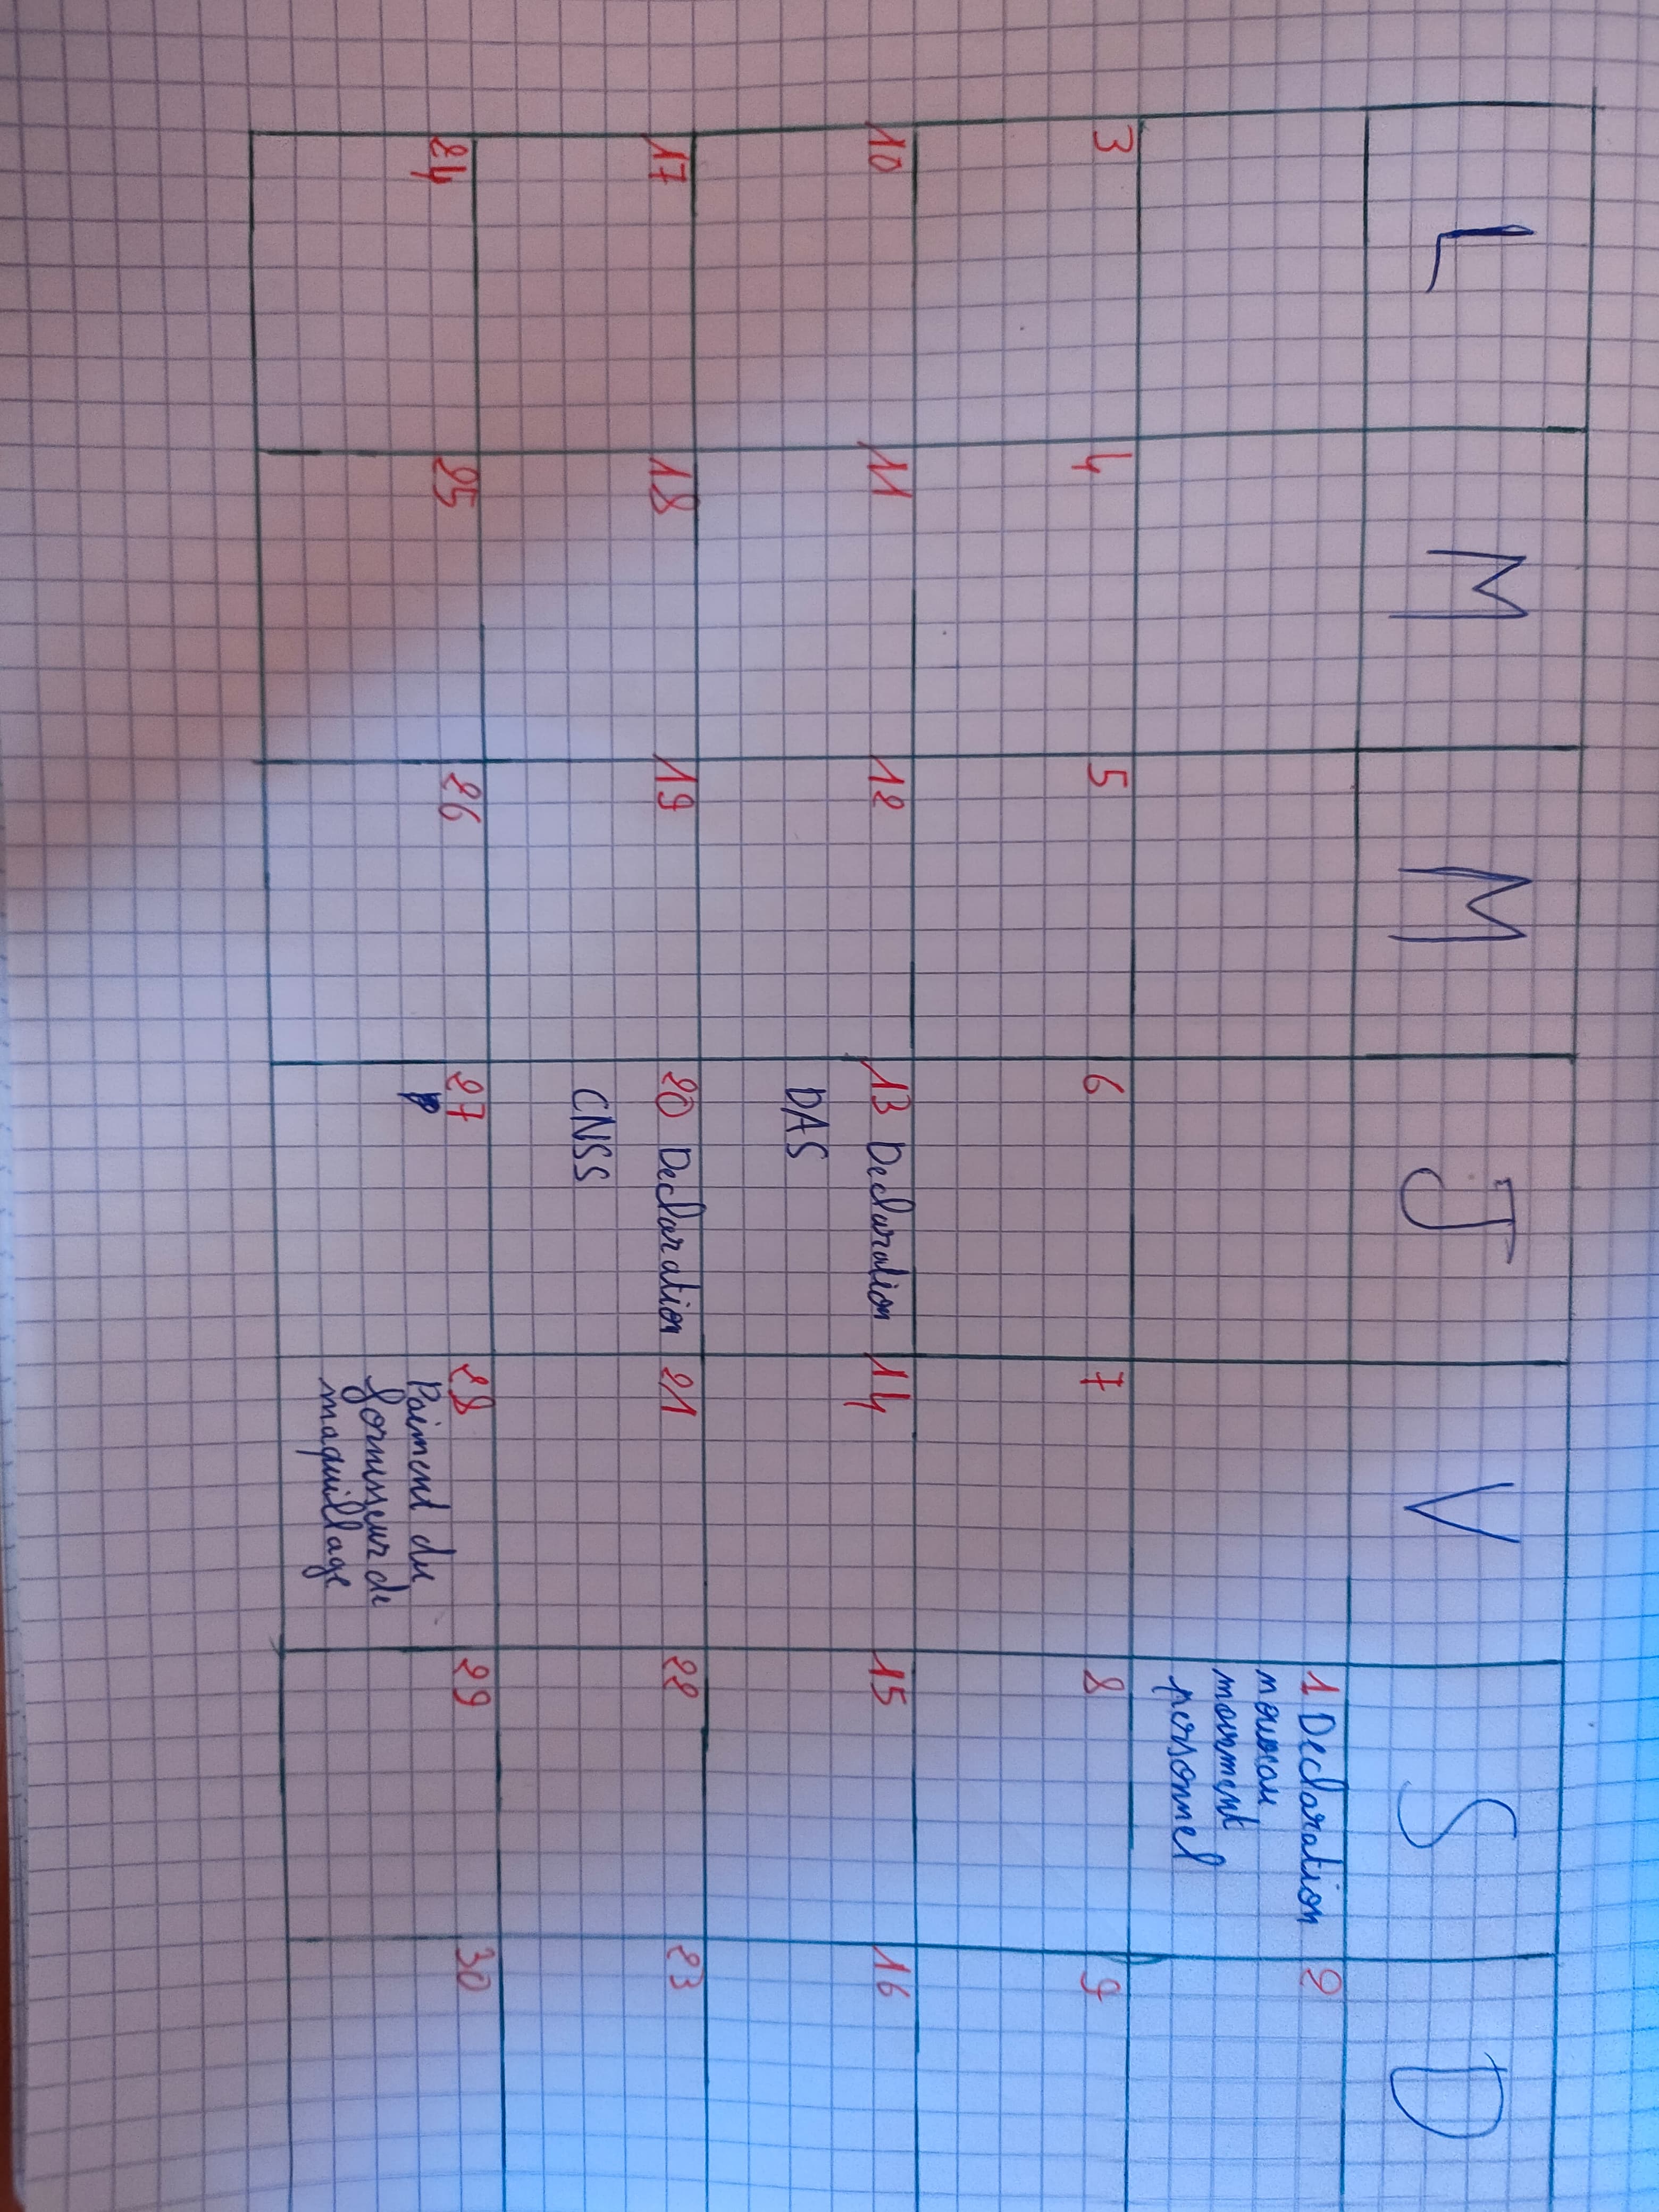 L M M J V S D
1 Declaration 2
nouveau
mouvment
personnel
3 4 5 6 7 8 9
10 11 12 13 Declaration 14 15 16
DAS
17 18 19 20 Declaration 21 22 23
CNSS
24 25 26 27 28 29 30
Paiment du
fornisseur de
maquillage